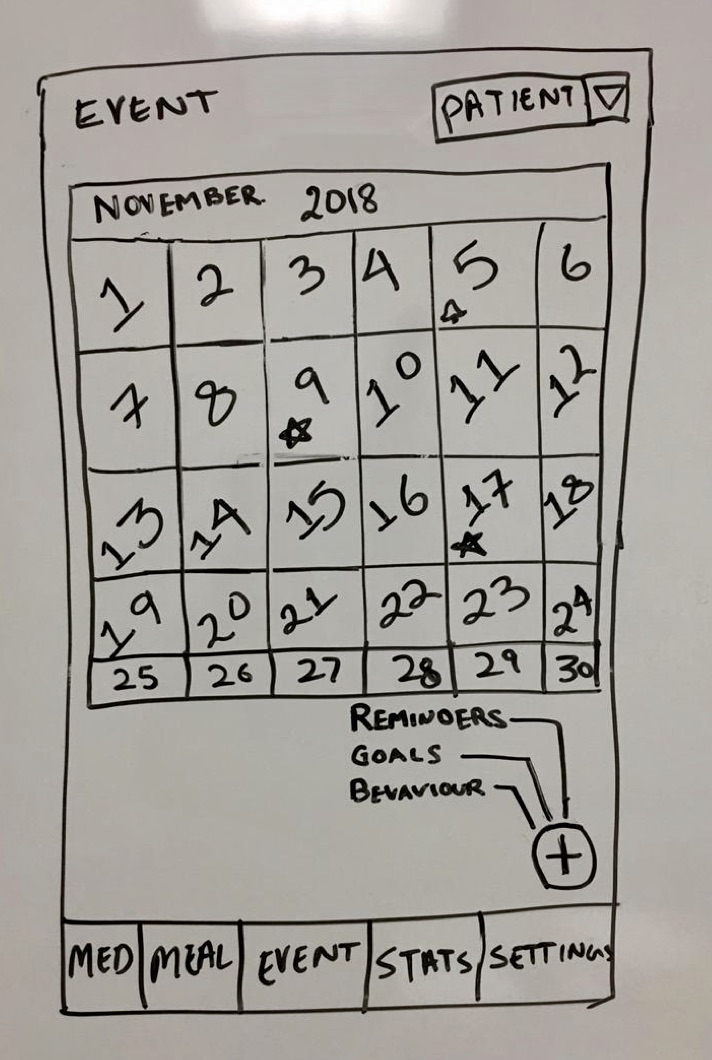 EVENT PATIENT
NOVEMBER 2018
1 2 3 4 5 6
7 8 9 10 11 12
13 14 15 16 17 18
19 20 21 22 23 24
25 26 27 28 29 30
REMINDERS
GOALS
BEVAVIOUR
+
MED MEAL EVENT STATS SETTINGS